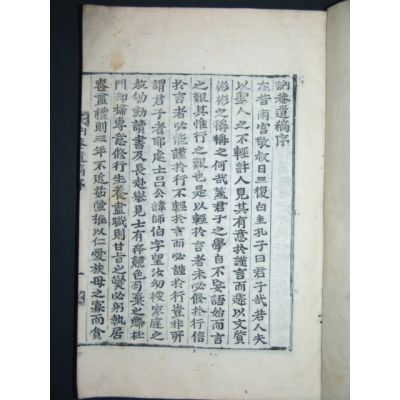 訥菴遺稿序
在昔南宮敬叔日三復白圭孔子曰君子哉若人夫
以聖人之不輕許人見其有意於謹言而遽以文質
彬彬之何哉蓋君子之學自不妄語始而言
之艱其惟行之艱也是以輕於言者未必修於行信
於言者必能謹於行不輕於言而必謹於行豈非所
謂君子者耶處士呂公諱師伯字望汝幼被家庭之
教劬勤讀書及長赴擧見士有競色而棄之歸杜
門却掃專意修行生養盡職則甘旨之必躬執居
喪盡禮則三年不近茹葷推以仁愛族母之寡而貧
訥菴遺稿序 一